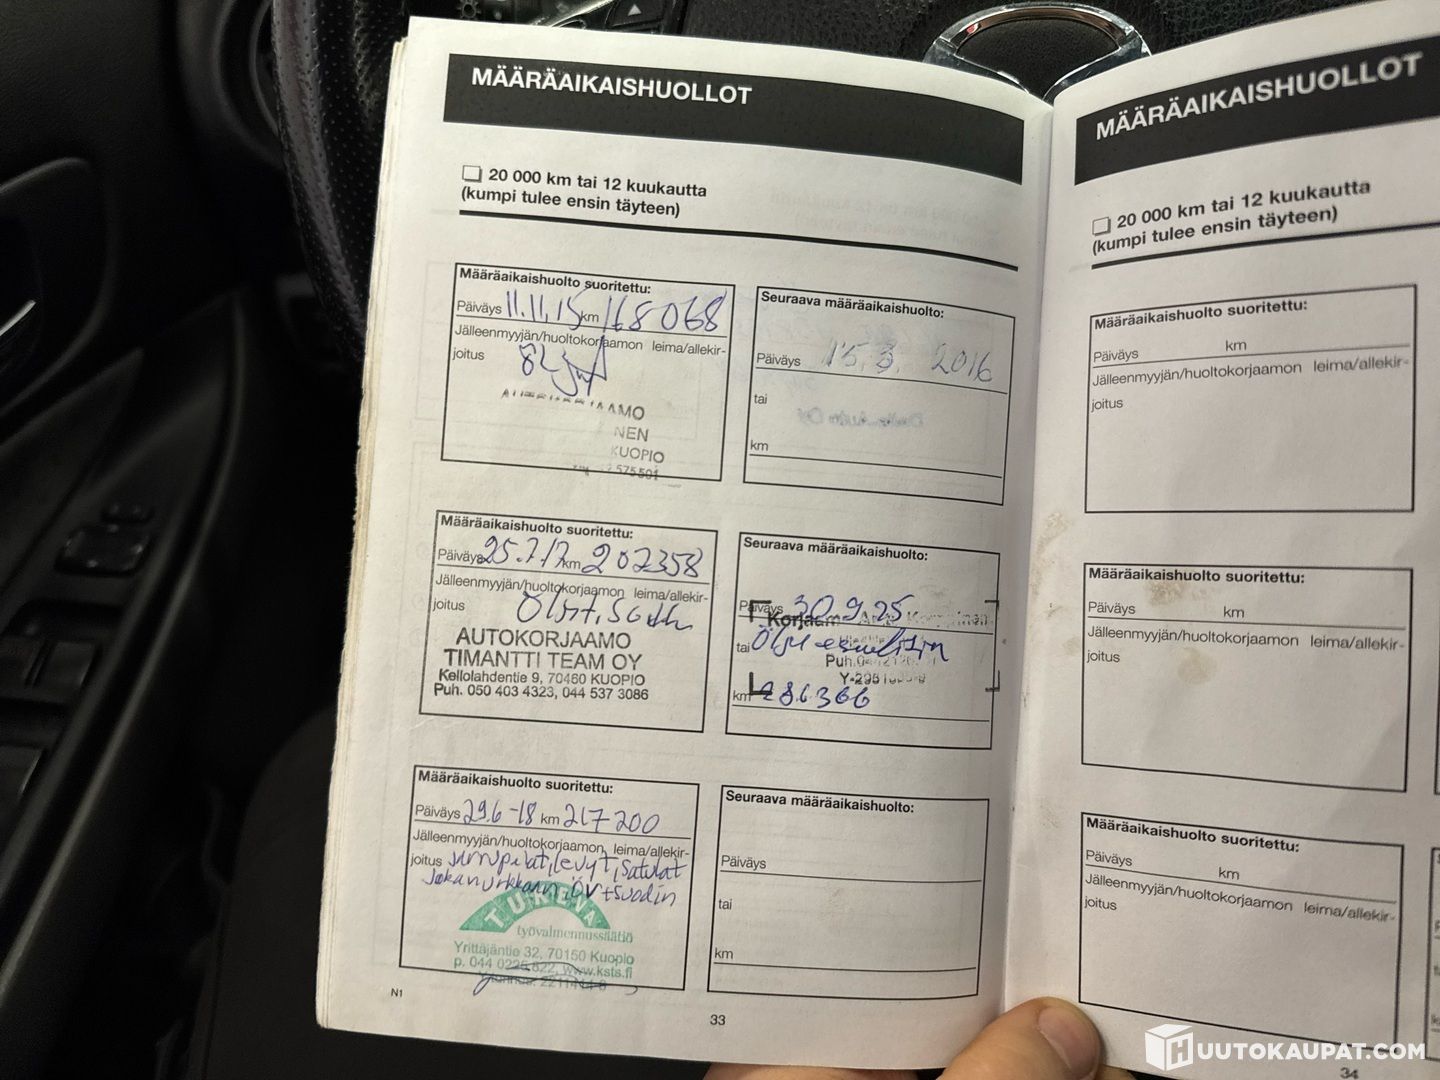 MÄÄRÄAIKAISHUOLLOT
20 000 km tai 12 kuukautta
(kumpi tulee ensin täyteen)
Määräaikaishuolto suoritettu:
Päiväys 11.11.15 km 168 068
Jälleenmyyjän/huoltokorjaamon leima/allekir-
joitus
NEN
KUOPIO
Seuraava määräaikaishuolto:
Päiväys 15.3. 2016
tai
km
Määräaikaishuolto suoritettu:
Päiväys 25.7.17 km 202358
Jälleenmyyjän/huoltokorjaamon leima/allekir-
joitus
AUTOKORJAAMO
TIMANTTI TEAM OY
Kellolahdentie 9, 70460 KUOPIO
Puh. 050 403 4323, 044 537 3086
Seuraava määräaikaishuolto:
Päiväys 30.9.25
tai
km 286366
Määräaikaishuolto suoritettu:
Päiväys 29.6-18 km 217 200
Jälleenmyyjän/huoltokorjaamon leima/allekir-
joitus levyt, satulat
TUKEVA
työvalmennussäätiö
Yrittäjäntie 32, 70150 Kuopio
www.ksts.fi
Seuraava määräaikaishuolto:
Päiväys
tai
km
N1
33
MÄÄRÄAIKAISHUOLLOT
20 000 km tai 12 kuukautta
(kumpi tulee ensin täyteen)
Määräaikaishuolto suoritettu:
Päiväys km
Jälleenmyyjän/huoltokorjaamon leima/allekir-
joitus
Määräaikaishuolto suoritettu:
Päiväys km
Jälleenmyyjän/huoltokorjaamon leima/allekir-
joitus
Määräaikaishuolto suoritettu:
Päiväys km
Jälleenmyyjän/huoltokorjaamon leima/allekir-
joitus
34
HUUTOKAUPAT.COM